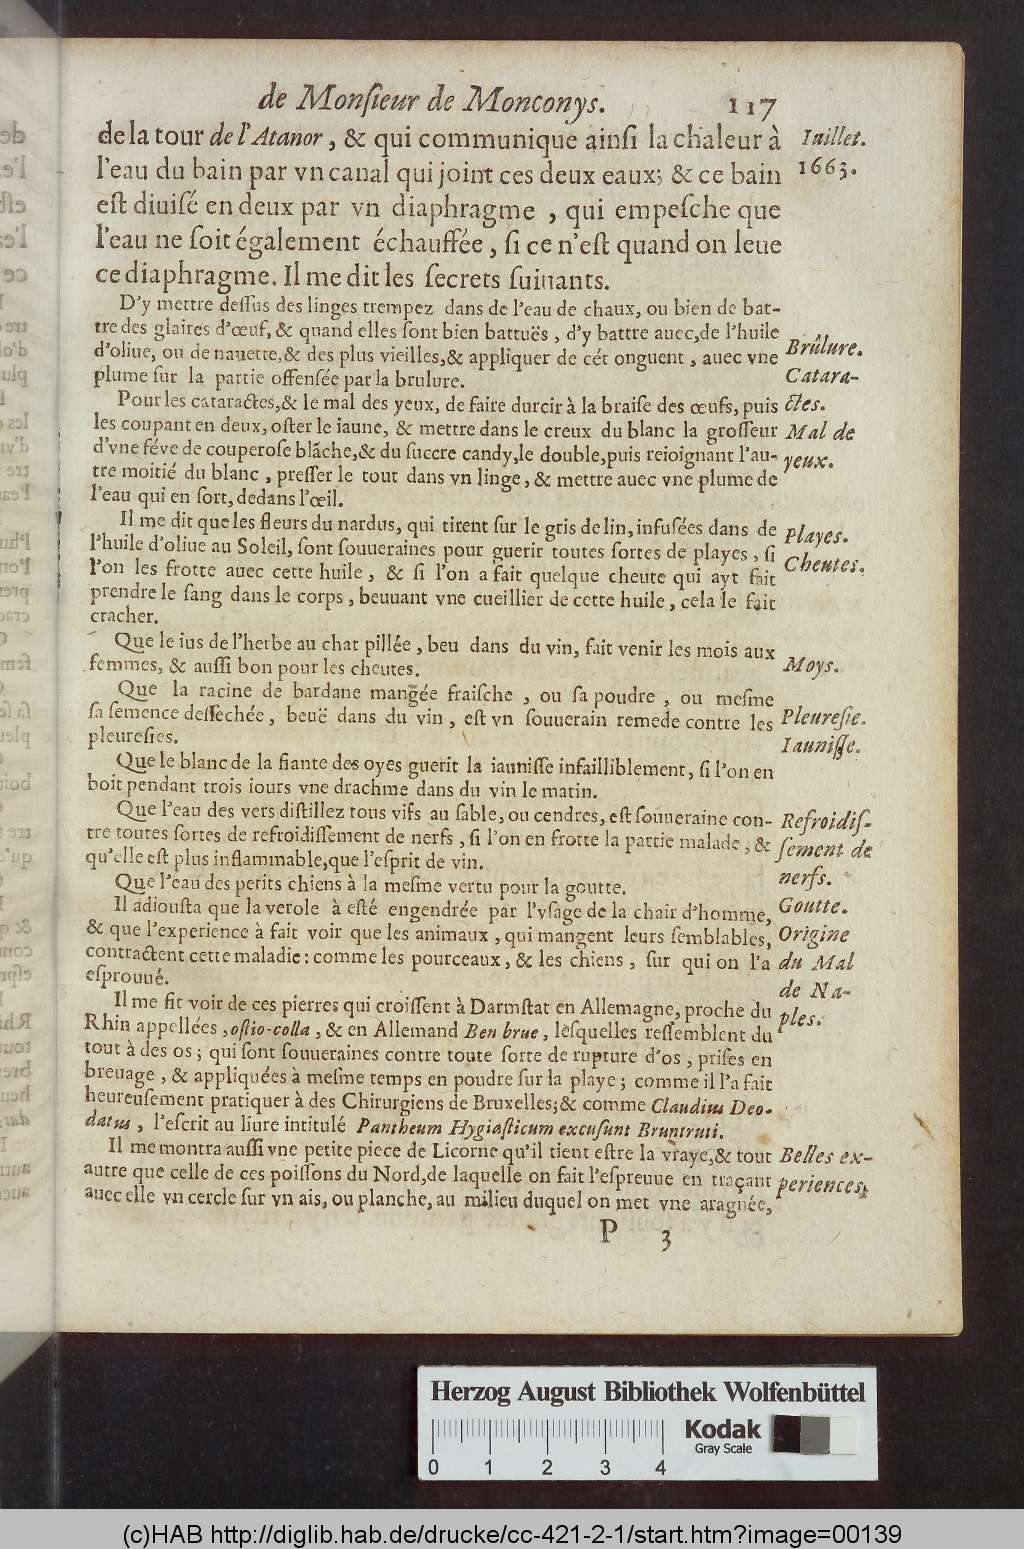 de Monſieur de Monconys. 117
de la tour de l'Atanor, & qui communique ainſi la chaleur à
l'eau du bain par vn canal qui joint ces deux eaux; & ce bain
eſt diuiſé en deux par vn diaphragme, qui empeſche que
l'eau ne ſoit également échauffée, ſi ce n'eſt quand on leue
ce diaphragme. Il me dit les ſecrets ſuiuants.
D'y mettre deſſus des linges trempez dans de l'eau de chaux, ou bien de bat-
tre des glaires d'œuf, & quand elles ſont bien battuës, d'y battre auec, de l'huile
d'oliue, ou de nauette, & des plus vieilles, & appliquer de cét onguent, auec vne
plume ſur la partie offenſée par la brulure.
Pour les cataractes, & le mal des yeux, de faire durcir à la braiſe des œufs, puis
les coupant en deux, oſter le iaune, & mettre dans le creux du blanc la groſſeur
d'vne féve de couperoſe blãche, & du ſuccre candy, le double, puis reioignant l'au-
tre moitié du blanc, preſſer le tout dans vn linge, & mettre auec vne plume de
l'eau qui en ſort, dedans l'œil.
Il me dit que les fleurs du nardus, qui tirent ſur le gris de lin, infuſées dans de
l'huile d'oliue au Soleil, ſont ſouueraines pour guerir toutes ſortes de playes, ſi
l'on les frotte auec cette huile, & ſi l'on a fait quelque cheute qui ayt fait
prendre le ſang dans le corps, beuuant vne cueillier de cette huile, cela le fait
cracher.
Que le ius de l'herbe au chat pillée, beu dans du vin, fait venir les mois aux
femmes, & auſſi bon pour les cheutes.
Que la racine de bardane mangée fraiſche, ou ſa poudre, ou meſme
ſa ſemence deſſechée, beuë dans du vin, eſt vn ſouuerain remede contre les
pleureſies.
Que le blanc de la fiante des oyes guerit la iauniſſe infailliblement, ſi l'on en
boit pendant trois iours vne drachme dans du vin le matin.
Que l'eau des vers diſtillez tous vifs au ſable, ou cendres, eſt ſouueraine con-
tre toutes ſortes de refroidiſſement de nerfs, ſi l'on en frotte la partie malade, &
qu'elle eſt plus inflammable, que l'eſprit de vin.
Que l'eau des petits chiens à la meſme vertu pour la goutte.
Il adiouſta que la verole à eſté engendrée par l'vſage de la chair d'homme,
& que l'experience à fait voir que les animaux, qui mangent leurs ſemblables,
contractent cette maladie: comme les pourceaux, & les chiens, ſur qui on l'a
eſprouué.
Il me fit voir de ces pierres qui croiſſent à Darmſtat en Allemagne, proche du
Rhin appellées, oſtio-colla, & en Allemand Ben brue, leſquelles reſſemblent du
tout à des os; qui ſont ſouueraines contre toute ſorte de rupture d'os, priſes en
breuage, & appliquées à meſme temps en poudre ſur la playe; comme il l'a fait
heureuſement pratiquer à des Chirurgiens de Bruxelles; & comme Claudius Deo-
datus, l'eſcrit au liure intitulé Pantheum Hygiaſticum excuſunt Bruntruti.
Il me montra auſſi vne petite piece de Licorne qu'il tient eſtre la vraye, & tout
autre que celle de ces poiſſons du Nord, de laquelle on fait l'eſpreuue en traçant
auec elle vn cercle ſur vn ais, ou planche, au milieu duquel on met vne aragnée,
P 3
Iuillet.
1663.
Brûlure.
Catara-
ctes.
Mal de
yeux.
Playes.
Cheutes.
Moys.
Pleureſie.
Iauniſſe.
Refroidiſ-
ſement de
nerfs.
Goutte.
Origine
du Mal
de Na-
ples.
Belles ex-
periences,
Herzog August Bibliothek Wolfenbüttel
Kodak
Gray Scale
0 1 2 3 4
(c)HAB http://diglib.hab.de/drucke/cc-421-2-1/start.htm?image=00139